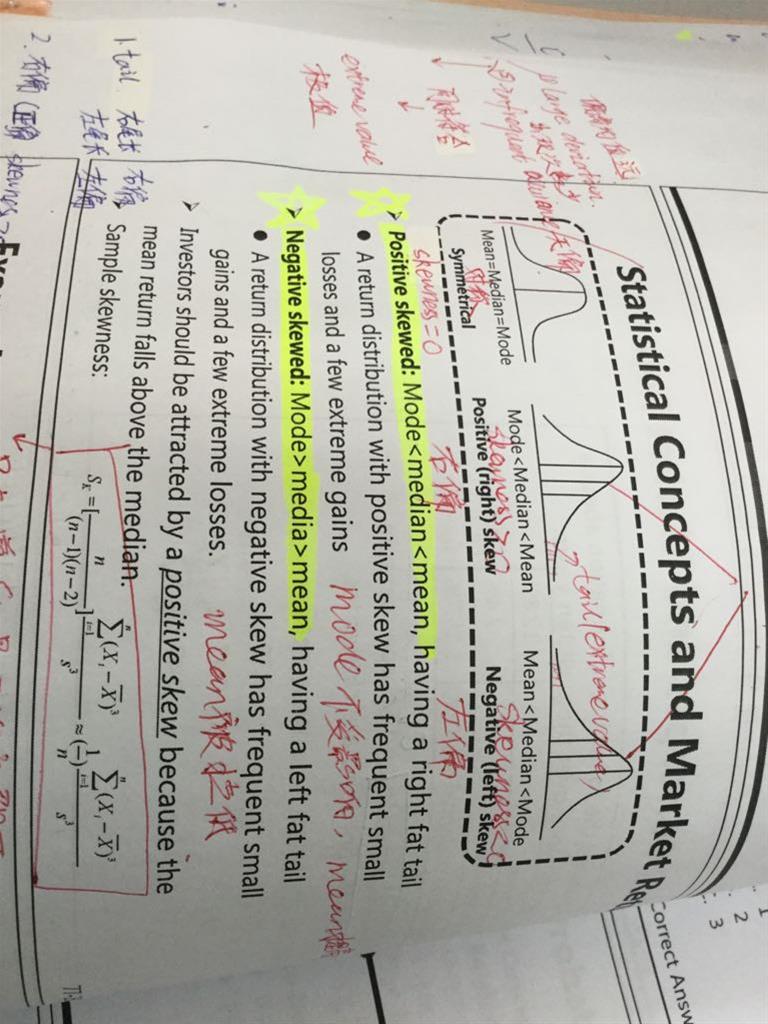 Statistical Concepts and Market Re
Mean=Median=Mode
Symmetrical
对称
skewness=0
Mode<Median<Mean
Positive (right) skew
skewness>0
右偏
Mean<Median<Mode
Negative (left) skew
skewness<0
左偏
tail (extreme value)
➢ Positive skewed: Mode<median<mean, having a right fat tail
● A return distribution with positive skew has frequent small
losses and a few extreme gains
mode 不受影响, mean
➢ Negative skewed: Mode>media>mean, having a left fat tail
● A return distribution with negative skew has frequent small
gains and a few extreme losses.
mean被拉低
➢ Investors should be attracted by a positive skew because the
mean return falls above the median.
➢ Sample skewness:
S_K = [n / (n−1)(n−2)] Σ_{i=1}^{n}(X_i − X̄)³ / s³ ≈ (1/n) Σ_{i=1}^{n}(X_i − X̄)³ / s³
large deviation.
infrequent
extreme value
极值
1. tail 右尾长 右偏
左尾长 左偏
2. 右偏 (正偏 skewness>0
Correct Answ
1
2
3